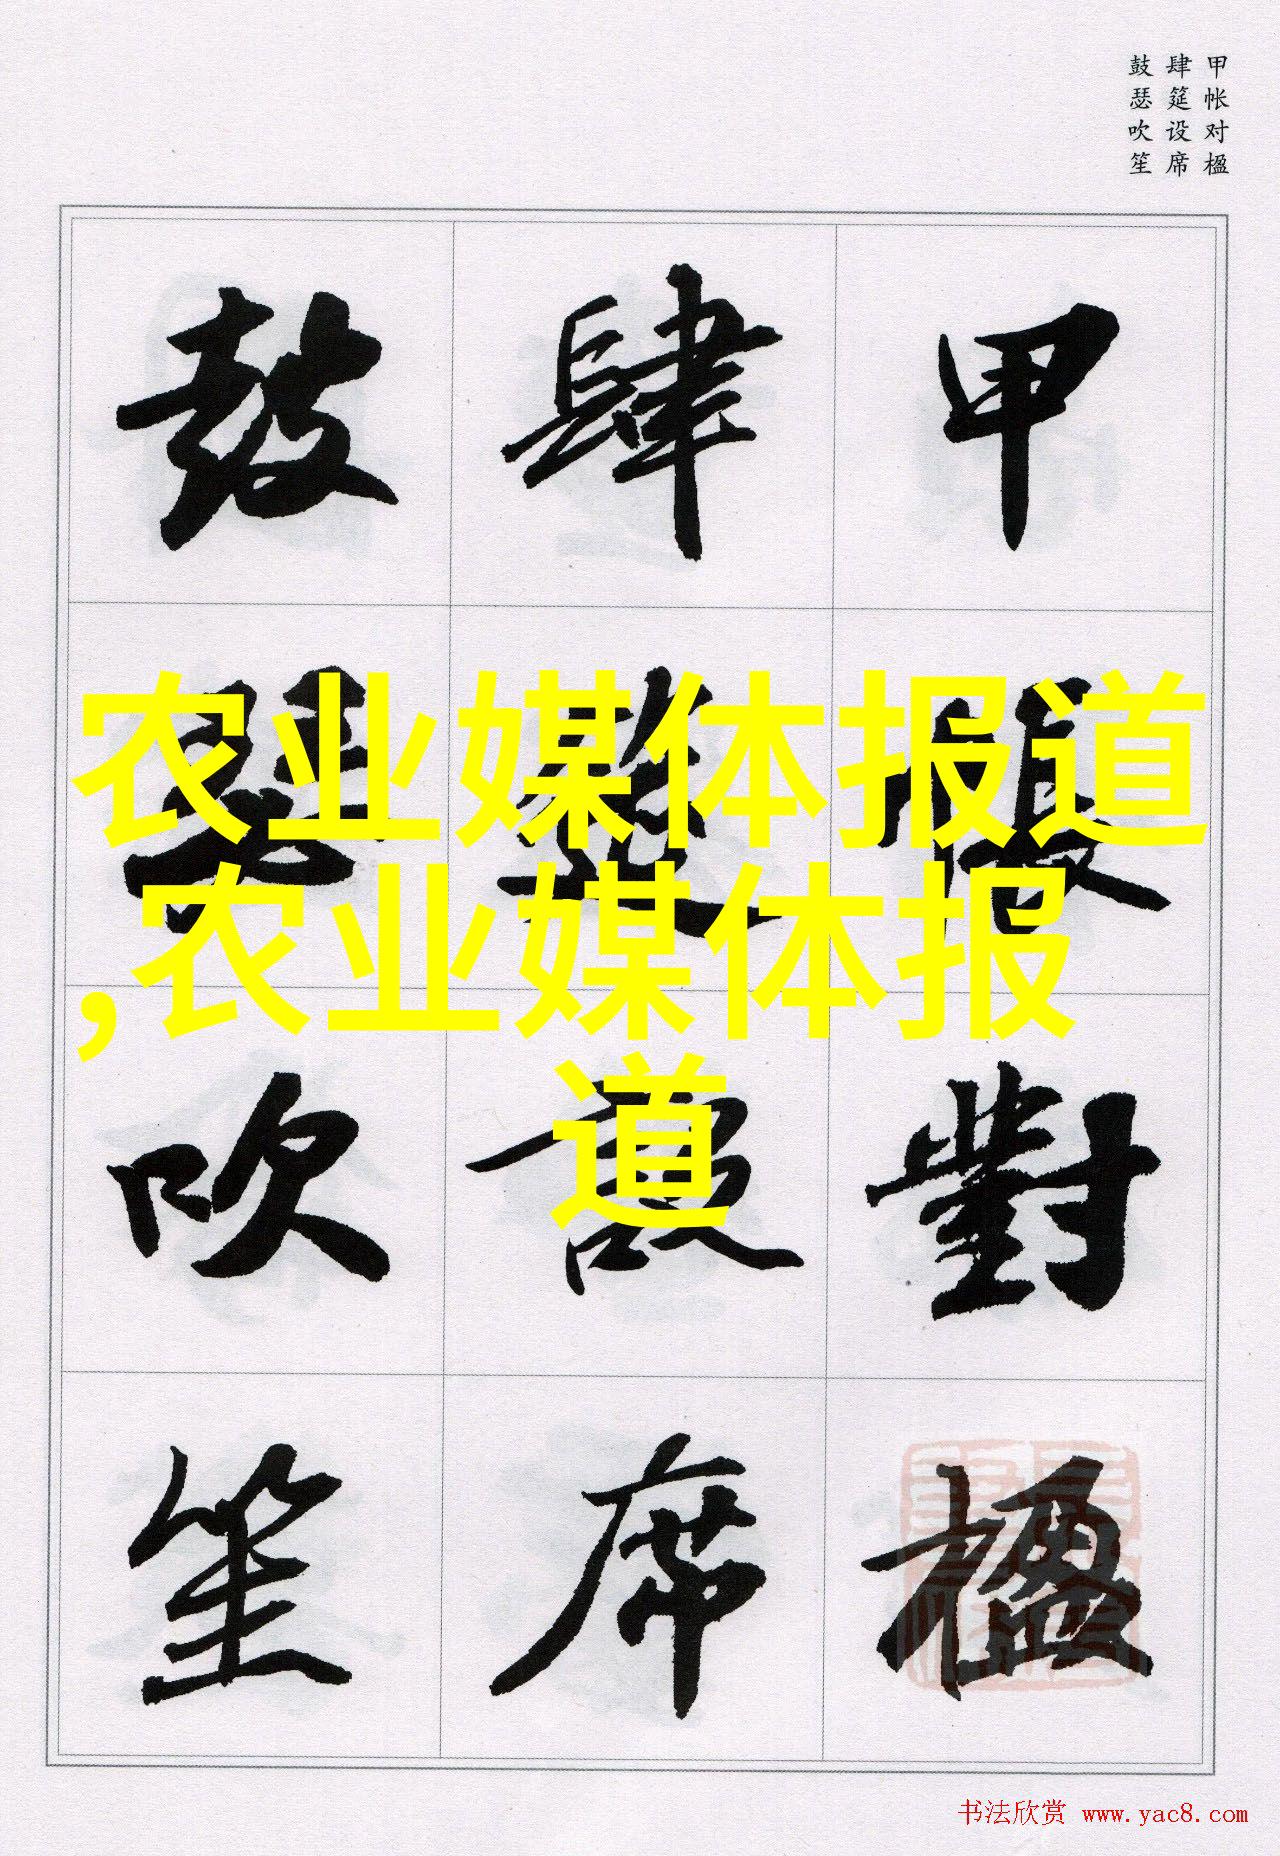 甲帐对楹
肆筵设席
鼓瑟吹笙
甲帳對楹
肆筵設席
鼓瑟吹笙
农业媒体报道
,农业媒体报
道
书法欣赏 www.yac8.com